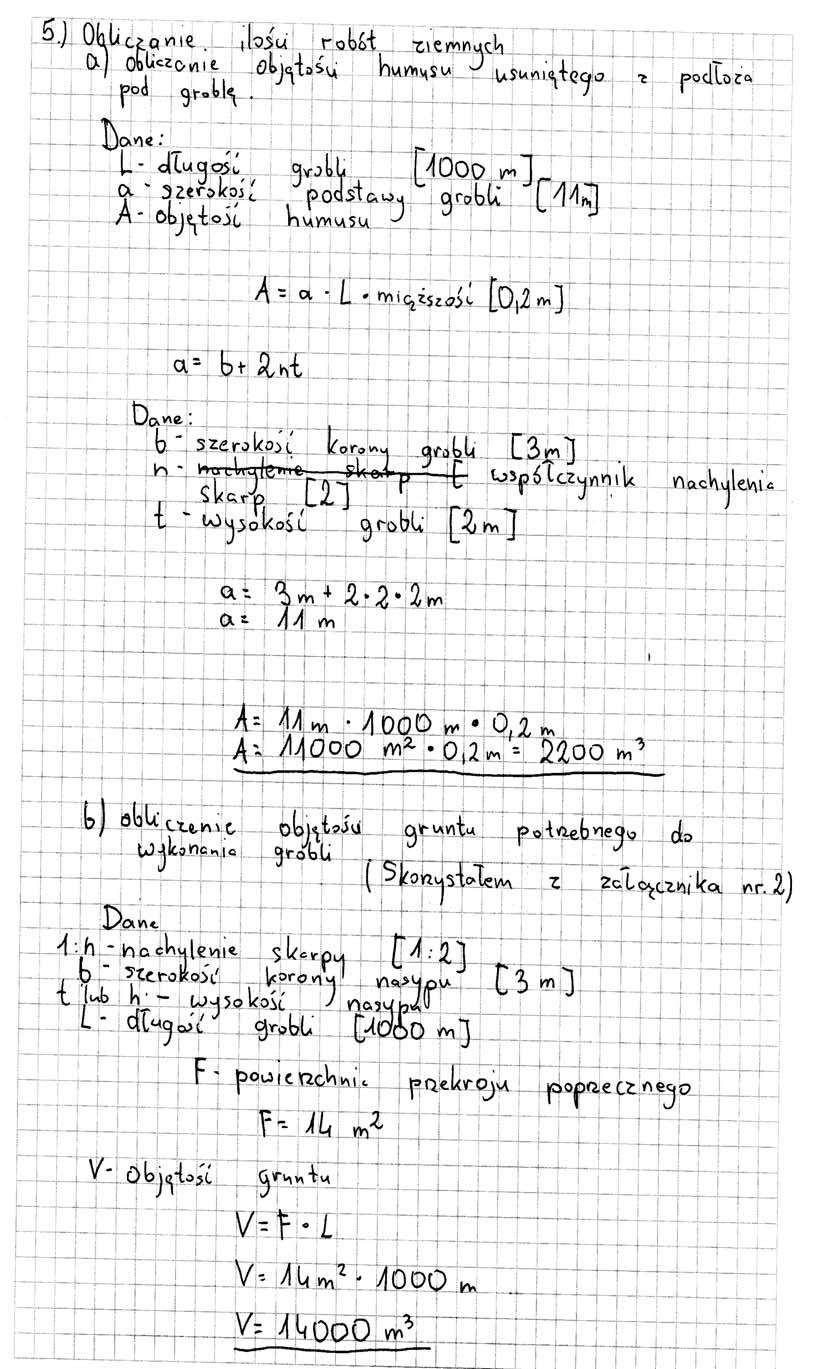 5.) Obliczanie ilości robót ziemnych
a) obliczanie objętości humusu usuniętego z podłoża
pod groblę.
Dane:
L - długość grobli [1000 m]
a - szerokość podstawy grobli [11m]
A - objętość humusu
A = a · L · miąższość [0,2m]
a = b + 2nt
Dane:
b - szerokość korony grobli [3m]
n - nachylenie skarp [ współczynnik nachylenia
skarp [2]
t - wysokość grobli [2m]
a = 3m + 2·2·2m
a = 11 m
A = 11m · 1000 m · 0,2 m
A = 11000 m² · 0,2m = 2200 m³
b) obliczenie objętości gruntu potrzebnego do
wykonania grobli
(Skorzystałem z załącznika nr.2)
Dane
1:n - nachylenie skarpy [1:2]
b - szerokość korony nasypu [3 m]
t lub h - wysokość nasypu
L - długość grobli [1000 m]
F - powierzchnia przekroju poprzecznego
F = 14 m²
V - Objętość gruntu
V = F · L
V = 14m² · 1000 m
V = 14000 m³